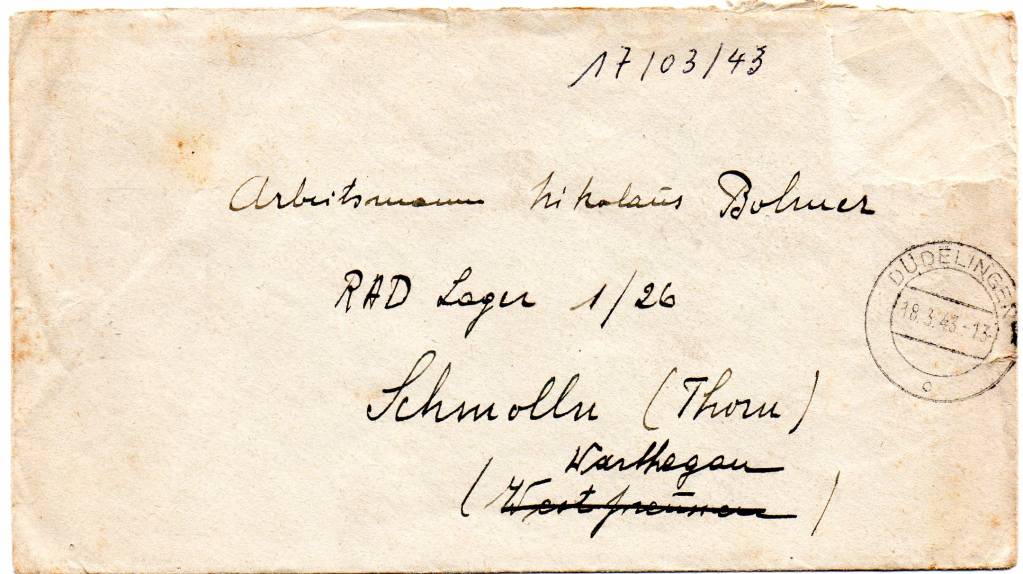 17/03/43
Arbeitsmann Nikolaus Bohmer
RAD Lager 1/26
DÜDELINGEN
18.3.43-13
c
Schmolln (Thorn)
Warthegau
(Westpreussen)